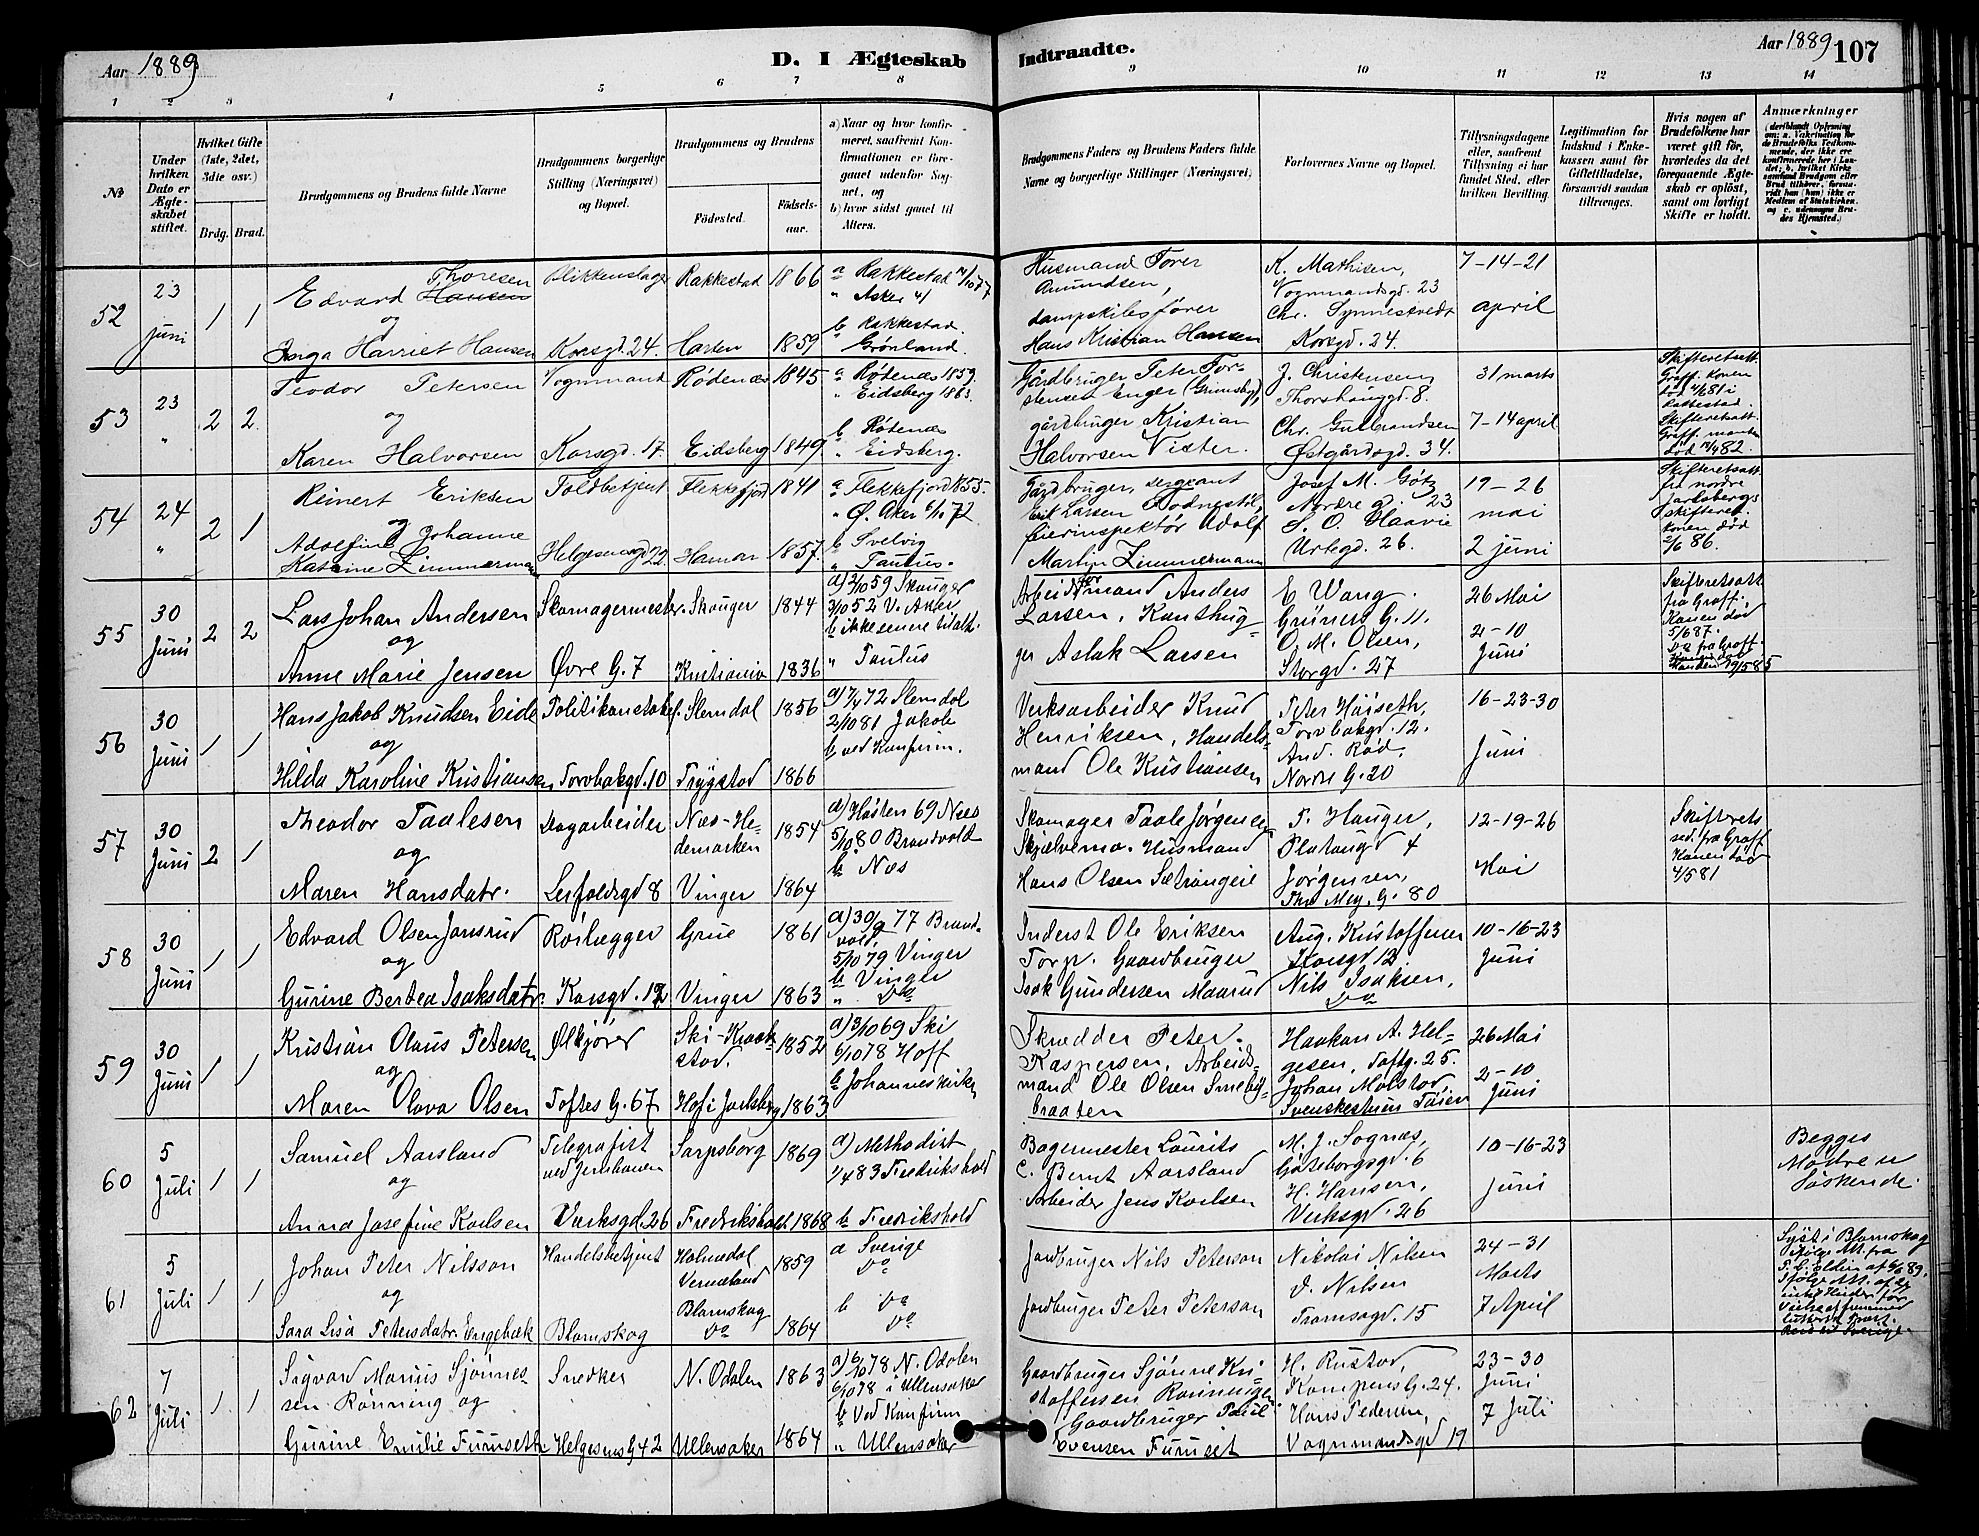 Aar 1889
D. I Ægteskab Indtraadte.
Aar 1889 107
1 2 3 4 5 6 7 8 9 10 11 12 13 14
№
Under hvilken Dato er Ægteskabet stiftet.
Hvilket Gifte (1ste, 2det, 3die osv.)
Brdg. Brud.
Brudgommens og Brudens fulde Navne
Brudgommens borgerlige Stilling (Næringsvei) og Bopæl.
Brudgommens og Brudens
Fødested.
Fødselsaar.
a) Naar og hvor konfirmeret, saafremt Konfirmationen er foregaaet udenfor Sognet, og
b) hvor sidst gaaet til Alters.
Brudgommens Faders og Brudens Faders fulde Navne og borgerlige Stillinger (Næringsvei)
Forlovernes Navne og Bopæl.
Tillysningsdagene eller, saafremt Tillysning ei har fundet Sted, efter hvilken Bevilling.
Legitimation for Indskud i Enkekassen samt for Giftetilladelse, forsaavidt saadan tiltrænges.
Hvis nogen af Brudefolkene har været gift før, hvorledes da det foregaaende Ægteskab er opløst, samt om lovligt Skifte er holdt.
Anmærkninger
52
23 Juni
1 1
Edvard Hansen Thoresen
og
Inga Harriet Hansen
Blikkenslager
Korsgd. 24.
Rakkestad 1866
Horten 1859
a Rakkestad
" Asker
b Rakkestad.
" Grønland.
Husmand Torer
Amundsen,
dampskibsfører
Hans Kristian Hansen
K. Mathisen,
Vognmandsgd. 23
Chr. Synnestvedt
Korsgd. 24.
7-14-21
april
53
23 "
2 2
Teodor Petersen
og
Karen Halvorsen
Vognmand
Korsgd. 17.
Rødenæs 1845
Eidsberg 1849
a Rødenæs 1859.
" Eidsberg 1863.
b Rødenæs
" Eidsberg.
Gårdbruger Peter Torstensen Enger (Grimsby),
gårdbruger Kristian
Halvorsen Vister.
J. Christensen,
Thorshauggd. 8.
Chr. Gulbrandsen
Østgårdsgd. 34.
31 marts
7-14 april
Skifteretsatt.
Graff. Konen
død 4/6 81 i
Rakkestad.
Skifteretsatt.
Graff. manden
død 82.
54
24 "
2 1
Reinert Eriksen
og
Adolfine Johanne
Katrine Zimmermann
Toldbetjent
Helgesensgd 22
Flekkefjord 1841
1857.
a Flekkefjord 1855.
" Ø. Aker 72
b Svelvig
" Paulus.
Gårdbruger, sergeant
Erik Larsen
feierinspektør Adolf
Martin Zimmermann
Josef M. Götz
Nordre g. 23
S. O. Haavie
Urtegd. 26.
19-26
mai
2 juni
Skifteretsatt
fra nordre
Jarlsbergs
skifteret.
konen død
2/6 86.
55
30 Juni
2 2
Lars Johan Andersen
og
Anne Marie Jensen
Skomagermester
Øvre G. 7
Skouger 1844
Kristiania 1836
a) 2/10 59 Skouger
3/10 52 V. Aker
b ikke senere til alt.
" Paulus
Arbeidsmand Anders
Larsen, Kunsthugger
Aslak Larsen
E Wang.
Grüners G. 11.
O. M. Olsen,
Storgd. 27
26 Mai
2-10
Juni
Skifteretsatt
fra Graff.
Konen død
5/6 87.
Do fra Graff.
Manden 19/5 85
56
30 Juni
1 1
Hans Jakob Knudsen Eide
og
Hilda Karoline Kristiansen
Politikonstabel
Torvbakgd. 10
Slemdal 1856
Trygstad 1866
a) 7/4 72 Slemdal
2/10 81 Jakob
b ved Konfirm.
Verksarbeider Knud
Henriksen, Handelsmand Ole Kristiansen
Peter Høiseth,
Torvbakgd. 12.
And. Rød,
Nordre G. 20
16-23-30
Juni
57
30 Juni
2 1
Theodor Paalesen
og
Maren Hansdatr.
Dagarbeider
Leirfaldsgd 8
Næs-Hedemarken 1854
Vinger 1864
a) Høsten 69 Næs
5/10 80 Brandvold
b Næs
Skomager Paale Jørgensen
Skjælvemo. Husmand
Hans Olsen Sætrangeie
T. Hauger,
Platougd 4
Jørgensen,
Thv Mey. G. 80
12-19-26
Mai
Skifterets
sed. fra Graff
Konen død
4/5 81
58
30 Juni
1 1
Edvard Olsen Jonsrud
og
Gurine Bertea Isaksdatr.
Rørlægger
Korsgd. 12
Grue 1861
Vinger 1863
a) 30/9 77 Brandvold.
5/10 79 Vinger
b Vinger
" Do
Inderst Ole Eriksen
Torp. Gaardbruger
Isak Gundersen Maarud
Aug. Kristoffersen
Korsgd 12.
Nils Isaksen,
Do
10-16-23
Juni
59
30 Juni
1 1
Kristian Olaus Petersen
og
Maren Olava Olsen
Ølkjører
Toftes G. 67
Ski-Kraakstad. 1852
Hof i Jarlsberg 1863
a) 3/10 69 Ski
6/10 78 Hoff
b Johanneskirken
Skrædder Peter
Kaspersen, Arbeidsmand Ole Olsen Smebybraaten
Haakon A. Helgesen, Toftg. 25.
Johan Molstad,
Svenskestuen Tøien
26 Mai
2-10
Juni
60
5 Juli
1 1
Samuel Aarsland
og
Anna Josefine Karlsen
Telegrafist
ved Jernbanen
Verksgd. 26
Sarpsborg 1869
Fredrikshald 1868
a) Methodist
1/4 83 Fredrikshald
b Fredrikshald
Bagermester Laurits
C. Bernt Aarsland
Arbeider Jens Karlsen
M. J. Sognæs,
Gøteborgsgd. 6
H. Hansen,
Verksgd. 26
10-16-23
Juni
Begges
Mødre er
Søskende.
61
5 Juli
1 1
Johan Peter Nilsson
og
Sara Lisa Petersdatr. Engebæk
Handelsbetjent
Blomskog
Holmedal
Vermeland 1859
Blomskog
Do 1864
a Sverige
Do
b Do
Do
Jordbruger Nils Peterson
Jordbruger Peter Peterson
Nikolai Nilsen
D. Nilsen
Tromsøgd. 15
24-31
Marts
7 April
Lyst i Blomskog
ifølge Att. fra
62
7 Juli
1 1
Sigvard Marius Sjønnesen Rønning og
Gurine Emilie Furuseth
Snedker
Helgesens G 42
N. Odalen 1863
Ullensaker 1864
a) 6/10 78 N. Odalen
6/10 78 i Ullensaker
b Ved Konfirm
" Ullensaker
Gaardbruger Sjønne Kristoffersen Rønningen
Gaardbruger Paul
Evensen Furuset
H. Rustad,
Kampens G. 24.
Hans Pedersen,
Vognmandsgd 19
23-30
Juni
7 Juli